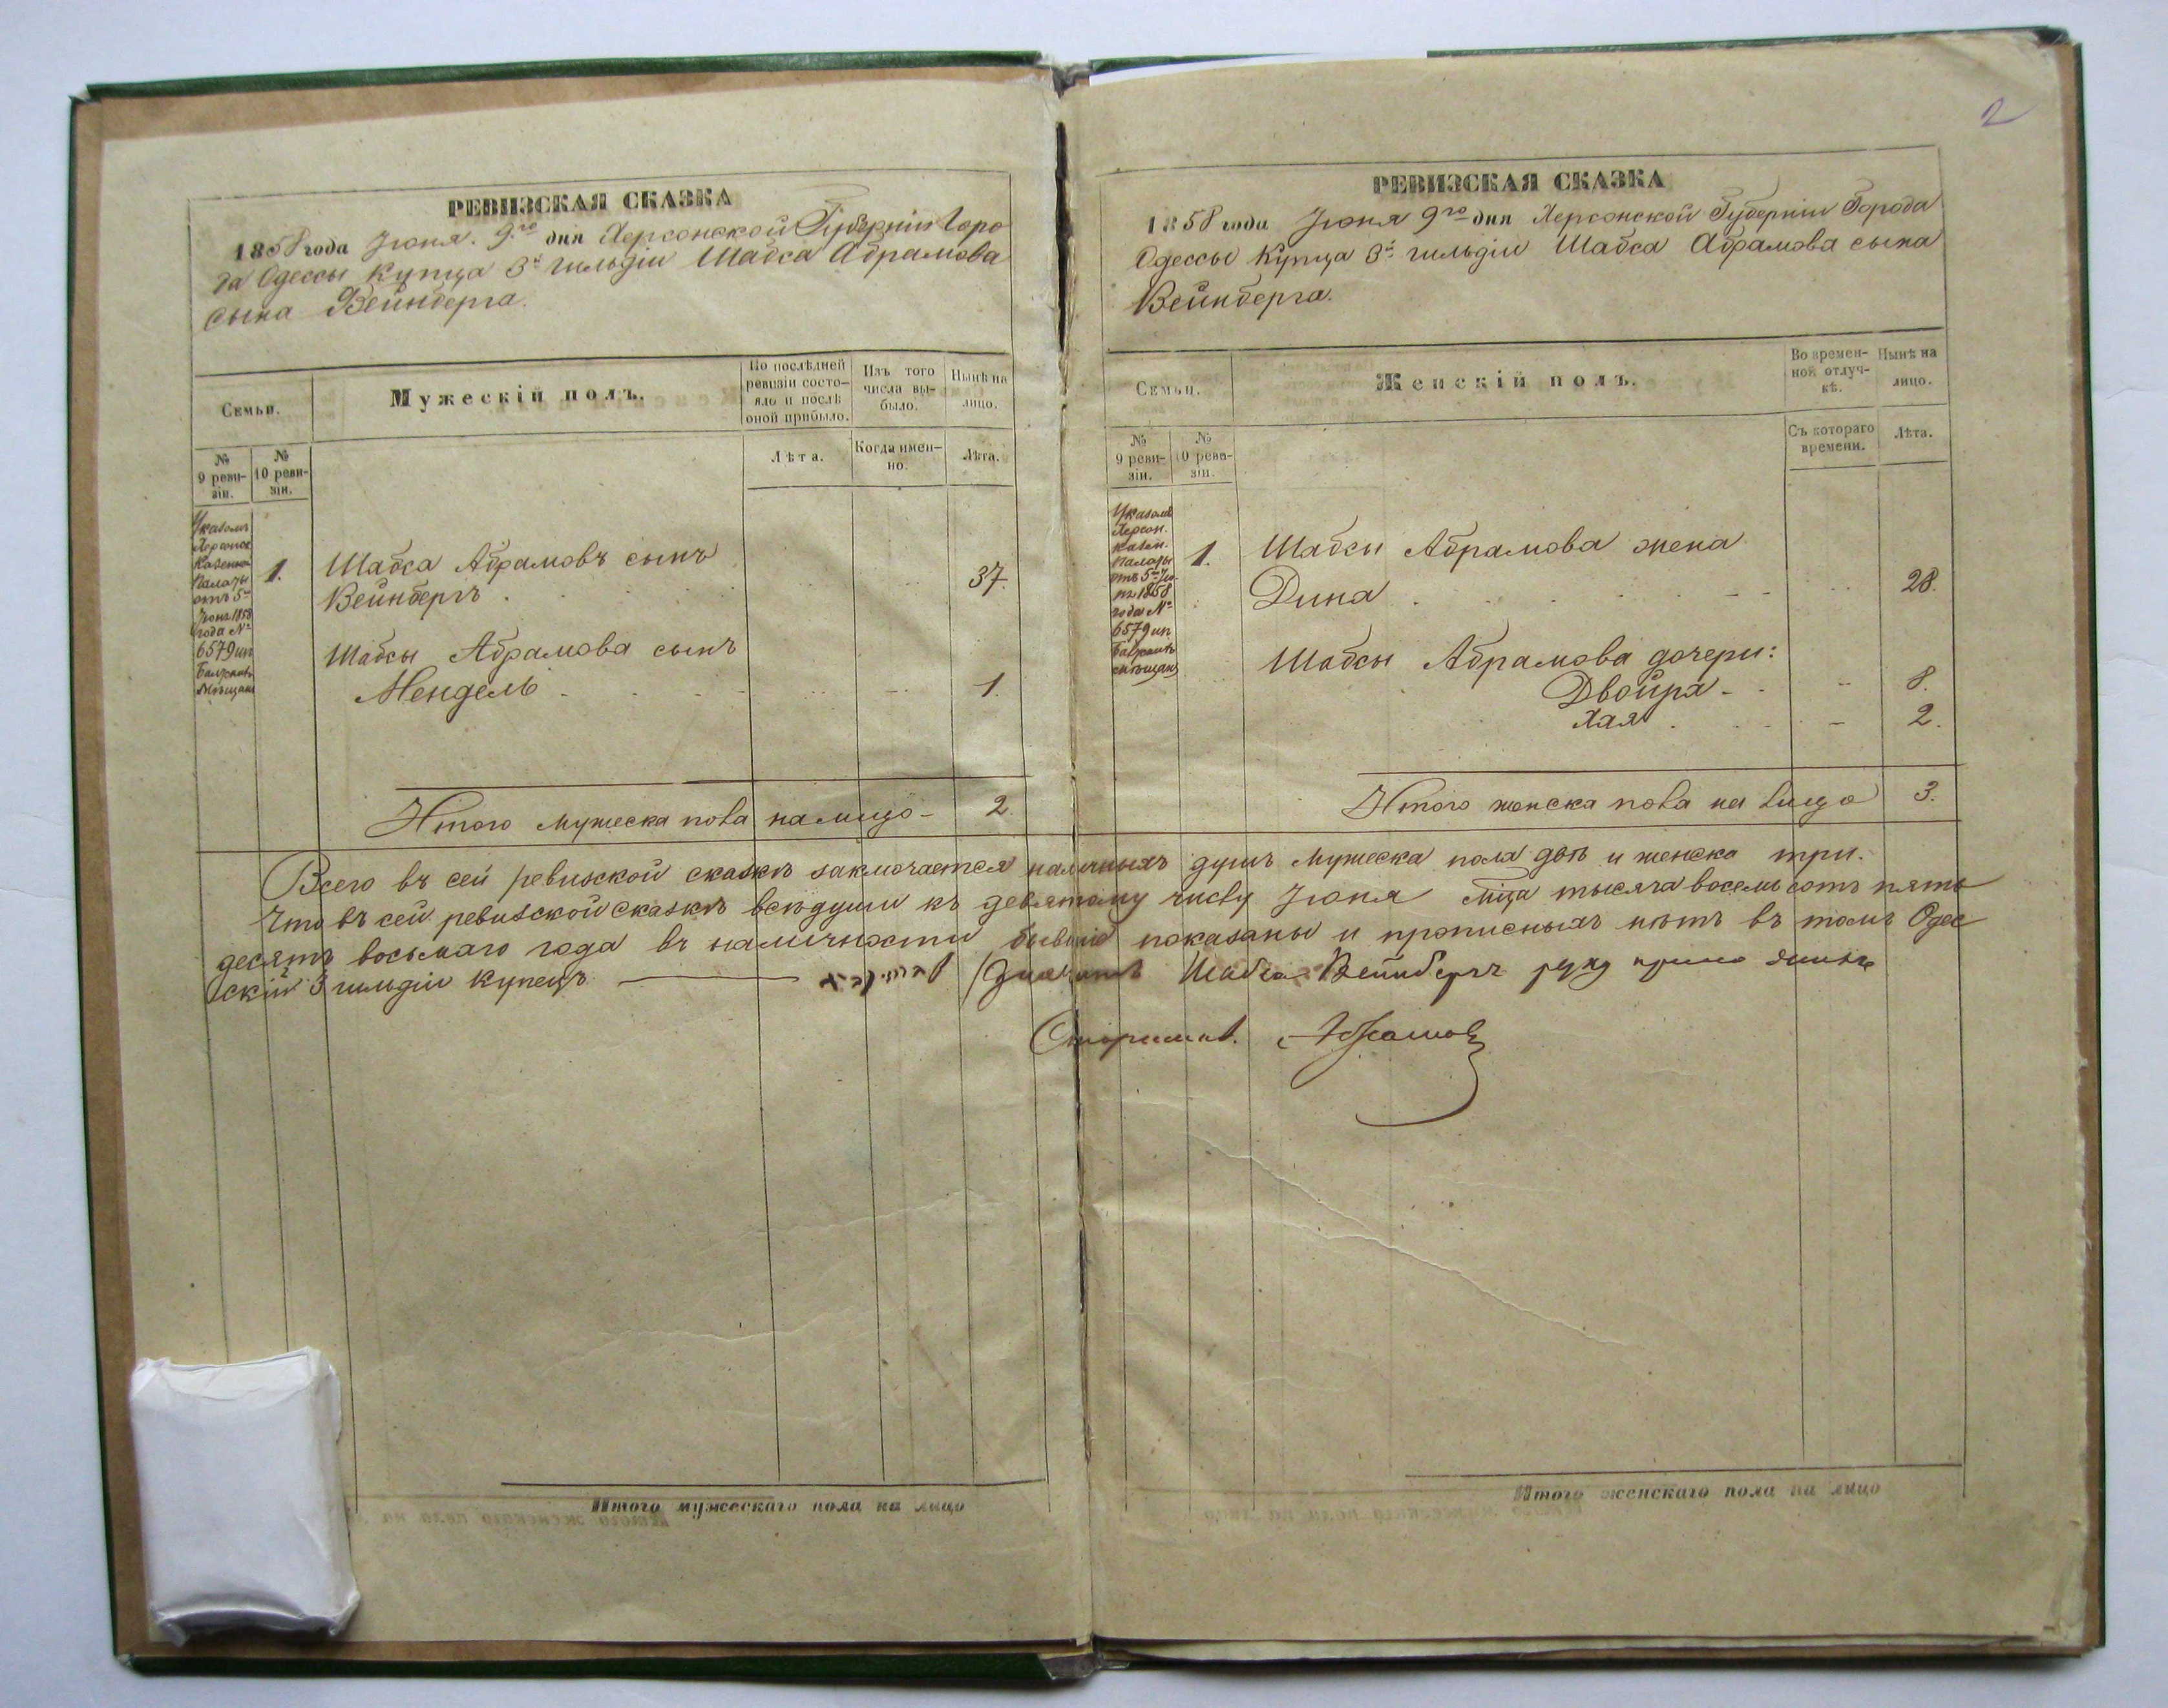 РЕВИЗСКАЯ СКАЗКА
1858 года Іюня 9го дня Херсонской Губерніи Горо
да Одессы Купца 3й гильдіи Шабса Абрамова
сына Вейнберга.
Семьи.
Мужескій полъ.
По послѣдней ревизіи состо-
яло и послѣ оной прибыло.
Изъ того числа вы-
было.
Нынѣ на лицо.
№ 9 реви-
зіи.
№ 10 реви-
зіи.
Лѣта.
Когда имен-
но.
Лѣта.
Указомъ
Херсонск
Казенной
Палаты
отъ 5го
Іюня 1858
года №
6579 из
1. Шабса Абрамовъ сынъ
Вейнбергъ . 37.
Шабсы Абрамова сынъ
Мендель 1.
Итого мужеска пола на лицо - 2
2
РЕВИЗСКАЯ СКАЗКА
1858 года Іюня 9го дня Херсонской Губерніи Города
Одессы Купца 3й гильдіи Шабса Абрамова сына
Вейнберга.
Семьи.
Женскій полъ.
Во времен-
ной отлуч-
кѣ.
Нынѣ на лицо.
№ 9 реви-
зіи.
№ 10 реви-
зіи.
Съ котораго времени.
Лѣта.
Указомъ
Херсон.
Казен.
Палаты
отъ 5го Ію
ня 1858
года №
6579 из
1. Шабсы Абрамова жена
Дина 28.
Шабсы Абрамова дочери:
Двойра - 8.
Хая 2.
Итого женска пола на лицо 3.
Всего въ сей ревизской сказкѣ заключается наличныхъ душъ мужеска пола двѣ и женска три.
Что въ сей ревизской сказкѣ всѣ души къ девятому числу Іюня мца тысяча восемь сотъ пять
десятъ восьмаго года въ наличности бывшіе показаны и прописныхъ нѣтъ въ томъ Одес
скій 3 гильдіи Купецъ Шабса Вейнбергъ руку
Итого мужескаго пола на лицо
Итого женскаго пола на лицо